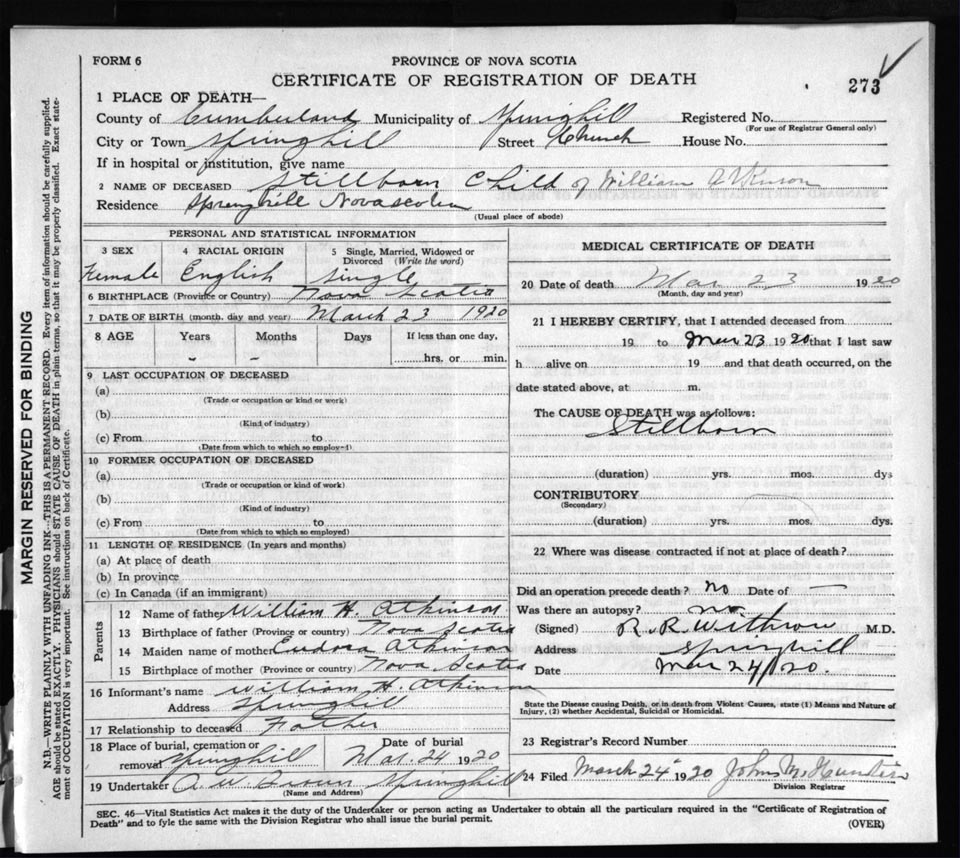 FORM 6
PROVINCE OF NOVA SCOTIA
CERTIFICATE OF REGISTRATION OF DEATH
273
1 PLACE OF DEATH—
County of Cumberland Municipality of Springhill Registered No.
(For use of Registrar General only)
City or Town Springhill Street Church House No.
If in hospital or institution, give name
2 NAME OF DECEASED Stillborn Child of William Atkinson
Residence Springhill Novascotia
(Usual place of abode)
PERSONAL AND STATISTICAL INFORMATION
3 SEX 4 RACIAL ORIGIN 5 Single, Married, Widowed or
Divorced (Write the word)
Female English Single
6 BIRTHPLACE (Province or Country) Nova Scotia
7 DATE OF BIRTH (month, day and year) March 23 1920
8 AGE Years Months Days If less than one day,
- - hrs. or min.
9 LAST OCCUPATION OF DECEASED
(a)
(Trade or occupation or kind or work)
(b)
(Kind of industry)
(c) From to
(Date from which to which so employed)
10 FORMER OCCUPATION OF DECEASED
(a)
(Trade or occupation or kind of work)
(b)
(Kind of industry)
(c) From to
(Date from which to which so employed)
11 LENGTH OF RESIDENCE (In years and months)
(a) At place of death
(b) In province
(c) In Canada (if an immigrant)
Parents
12 Name of father William H. Atkinson
13 Birthplace of father (Province or country) Nova Scotia
14 Maiden name of mother Eudora Atkinson
15 Birthplace of mother (Province or country) Nova Scotia
16 Informant's name William H Atkinson
Address Springhill
17 Relationship to deceased Father
18 Place of burial, cremation or Date of burial
removal Springhill Mar. 24 1920
19 Undertaker A. W. Brown Springhill
(Name and Address)
MEDICAL CERTIFICATE OF DEATH
20 Date of death Mar 23 1920
(Month, day and year)
21 I HEREBY CERTIFY, that I attended deceased from
19 to Mar 23 1920 that I last saw
h alive on 19 and that death occurred, on the
date stated above, at m.
The CAUSE OF DEATH was as follows:
Stillborn
(duration) yrs. mos. dys
CONTRIBUTORY
(Secondary)
(duration) yrs. mos. dys.
22 Where was disease contracted if not at place of death?
Did an operation precede death? No Date of —
Was there an autopsy? no
(Signed) R. R. Withrow M.D.
Address Springhill
Date Mar 24/20.
State the Disease causing Death, or in death from Violent Causes, state (1) Means and Nature of
Injury, (2) whether Accidental, Suicidal or Homicidal.
23 Registrar's Record Number
24 Filed March 24 1920 John M. Hunter
Division Registrar
SEC. 46—Vital Statistics Act makes it the duty of the Undertaker or person acting as Undertaker to obtain all the particulars required in the "Certificate of Registration of
Death" and to fyle the same with the Division Registrar who shall issue the burial permit.
(OVER)
MARGIN RESERVED FOR BINDING
N.B.—WRITE PLAINLY WITH UNFADING INK—THIS IS A PERMANENT RECORD. Every item of information should be carefully supplied.
AGE should be stated EXACTLY. PHYSICIANS should STATE CAUSE OF DEATH in plain terms, so that it may be properly classified. Exact state-
ment of OCCUPATION is very important. See instructions on back of Certificate.